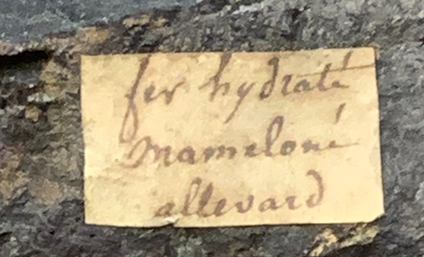 fer hydraté
Mameloné
allevard